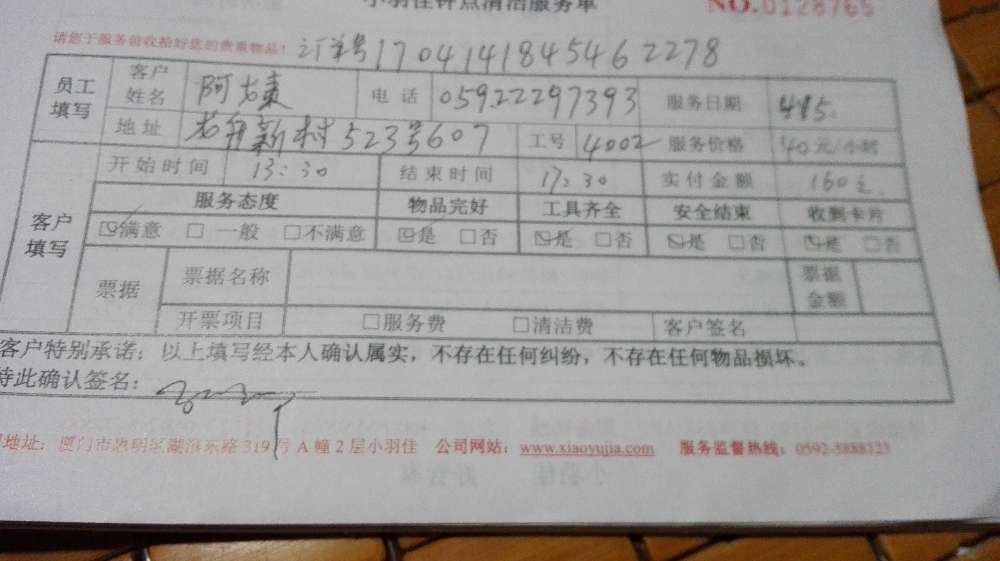 小羽佳钟点清洁服务单 NO.0128765
请您于服务前收拾好您的贵重物品! 订单号 1704141845462278
员工填写 客户姓名 电话 05922297393 服务日期 4.15.
地址 新村523号607 工号 4002 服务价格 40元/小时
客户填写 开始时间 13:30 结束时间 17:30 实付金额 160元
服务态度 物品完好 工具齐全 安全结束 收到卡片
☑满意 □一般 □不满意 ☑是 □否 ☑是 □否 ☑是 □否 ☑是 □否
票据 票据名称 票据金额
开票项目 □服务费 □清洁费 客户签名
客户特别承诺:以上填写经本人确认属实,不存在任何纠纷,不存在任何物品损坏。
特此确认签名:
地址:厦门市思明区湖滨东路319号A幢2层小羽佳 公司网站:www.xiaoyujia.com 服务监督热线:0592-5888323